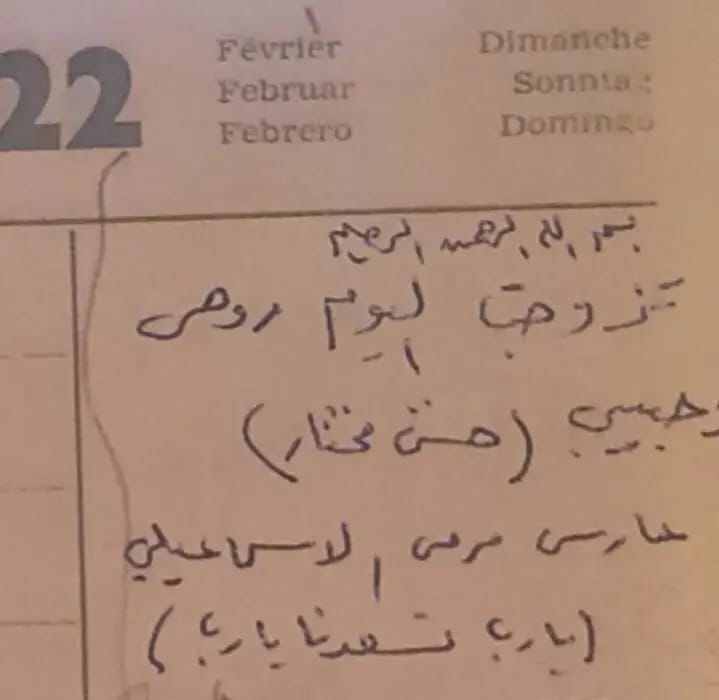 22 Février Dimanche
Februar Sonntag
Febrero Domingo
بسم الله الرحمن الرحيم
تزوجت اليوم روحى
وحبيبى (حسن مختار)
حارس مرمى الاسماعيلي
(يارب تسعدنا يارب)